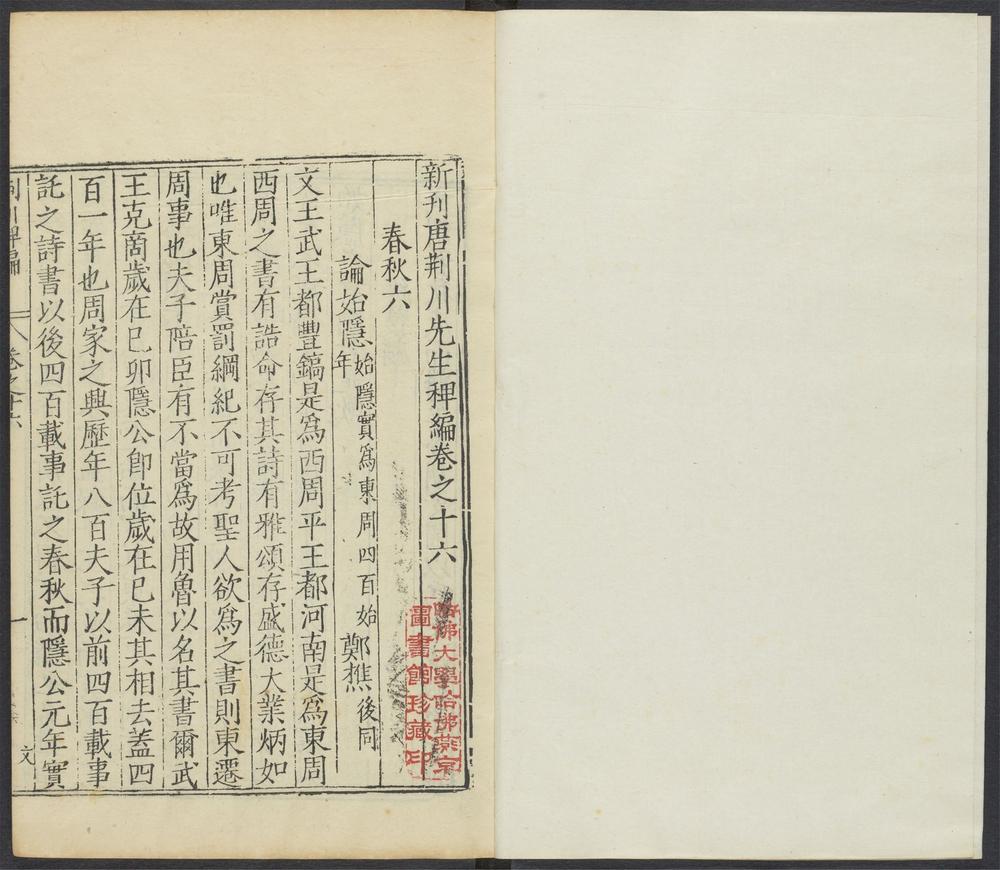 新刊唐荆川先生稗編卷之十六
春秋六
論始隱始隱實爲東周四百始年 鄭樵後同
文王武王都豐鎬是爲西周平王都河南是爲東周
西周之書有誥命存其詩有雅頌存盛德大業炳如
也唯東周賞罰綱紀不可考聖人欲爲之書則東遷
周事也夫子陪臣有不當爲故用魯以名其書爾武
王克商歲在已卯隱公卽位歲在已未其相去蓋四
百一年也周家之興歷年八百夫子以前四百載事
託之詩書以後四百載事託之春秋而隱公元年實
荆川稗編
卷之十六
一
文
哈佛大學哈佛燕京
圖書館珍藏印